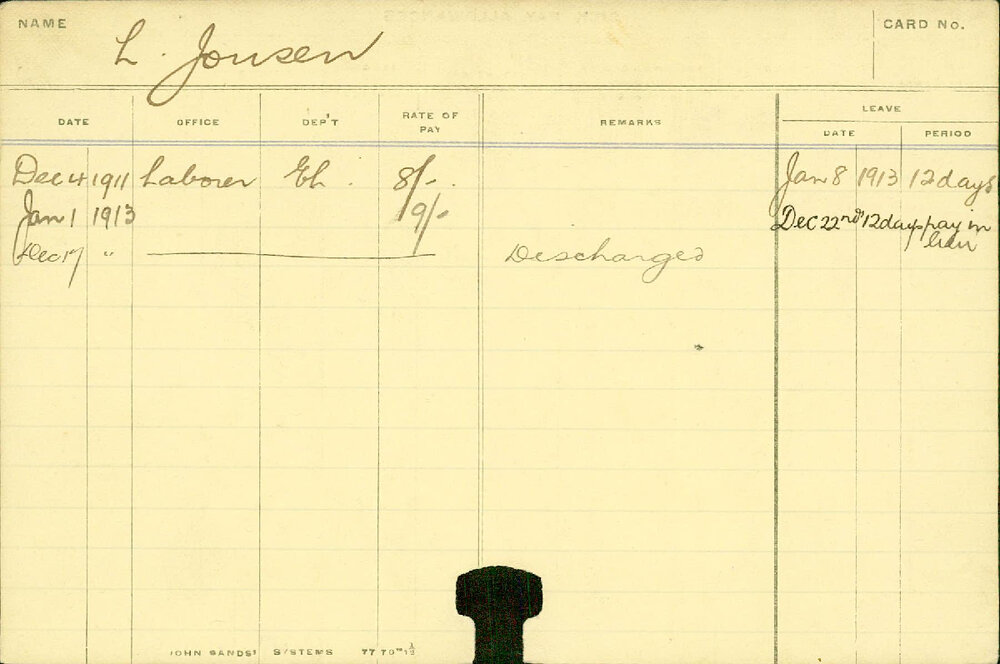 NAME L. Jonsen CARD No.
DATE OFFICE DEP'T RATE OF PAY REMARKS LEAVE
DATE PERIOD
Dec 4 1911 Laborer Eh. 8/- Jan 8 1913 12 days
Jan 1 1913 9/- Dec 22nd 12 days pay in lieu
Dec 17 " Discharged
JOHN SANDS' SYSTEMS